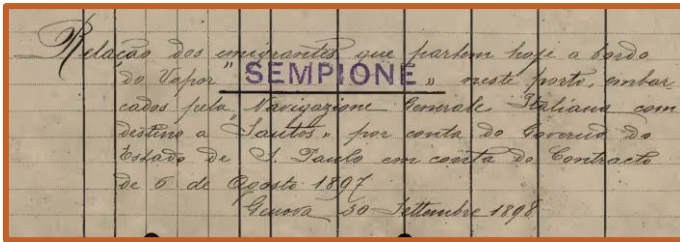 Relação dos emigrantes que partem hoje a bordo
do Vapor "SEMPIONE" neste porto, embar-
cados pela Navigazione Generale Italiana com
destino a "Santos" por conta do Governo do
Estado de S. Paulo em conta do Contracto
de 6 de Agosto 1897
Genova 30 Settembre 1898